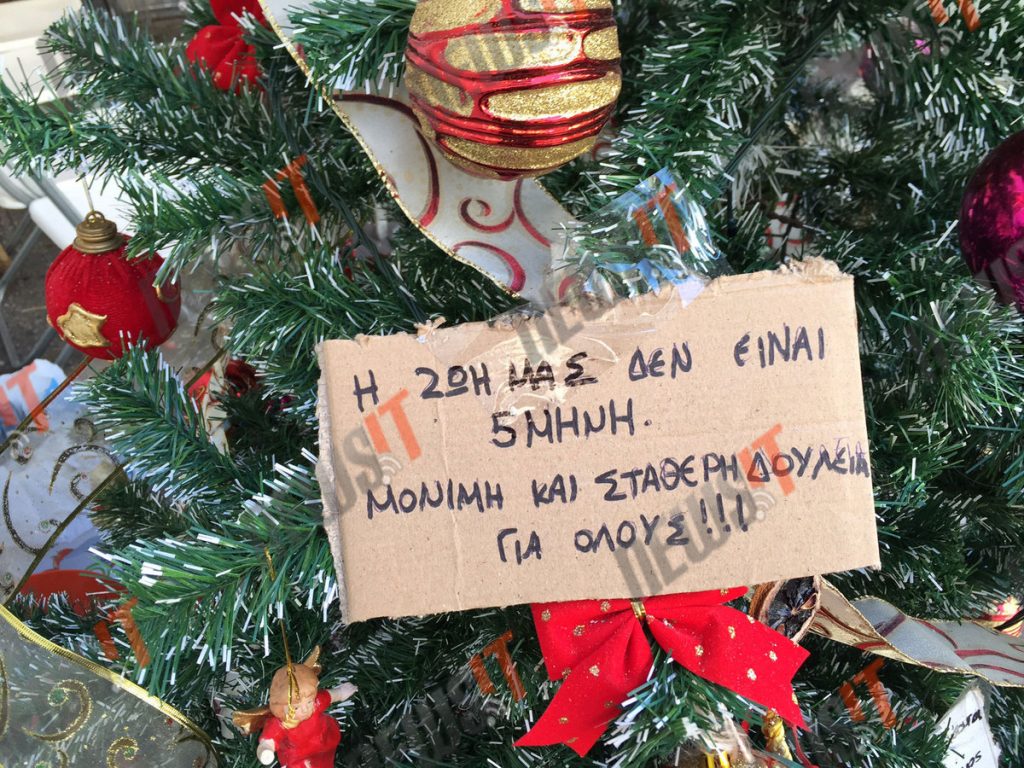 Η ΖΩΗ ΜΑΣ ΔΕΝ ΕΙΝΑΙ
5ΜΗΝΗ.
ΜΟΝΙΜΗ ΚΑΙ ΣΤΑΘΕΡΗ ΔΟΥΛΕΙΑ
ΓΙΑ ΟΛΟΥΣ!!!
NEWSIT
NEWSIT